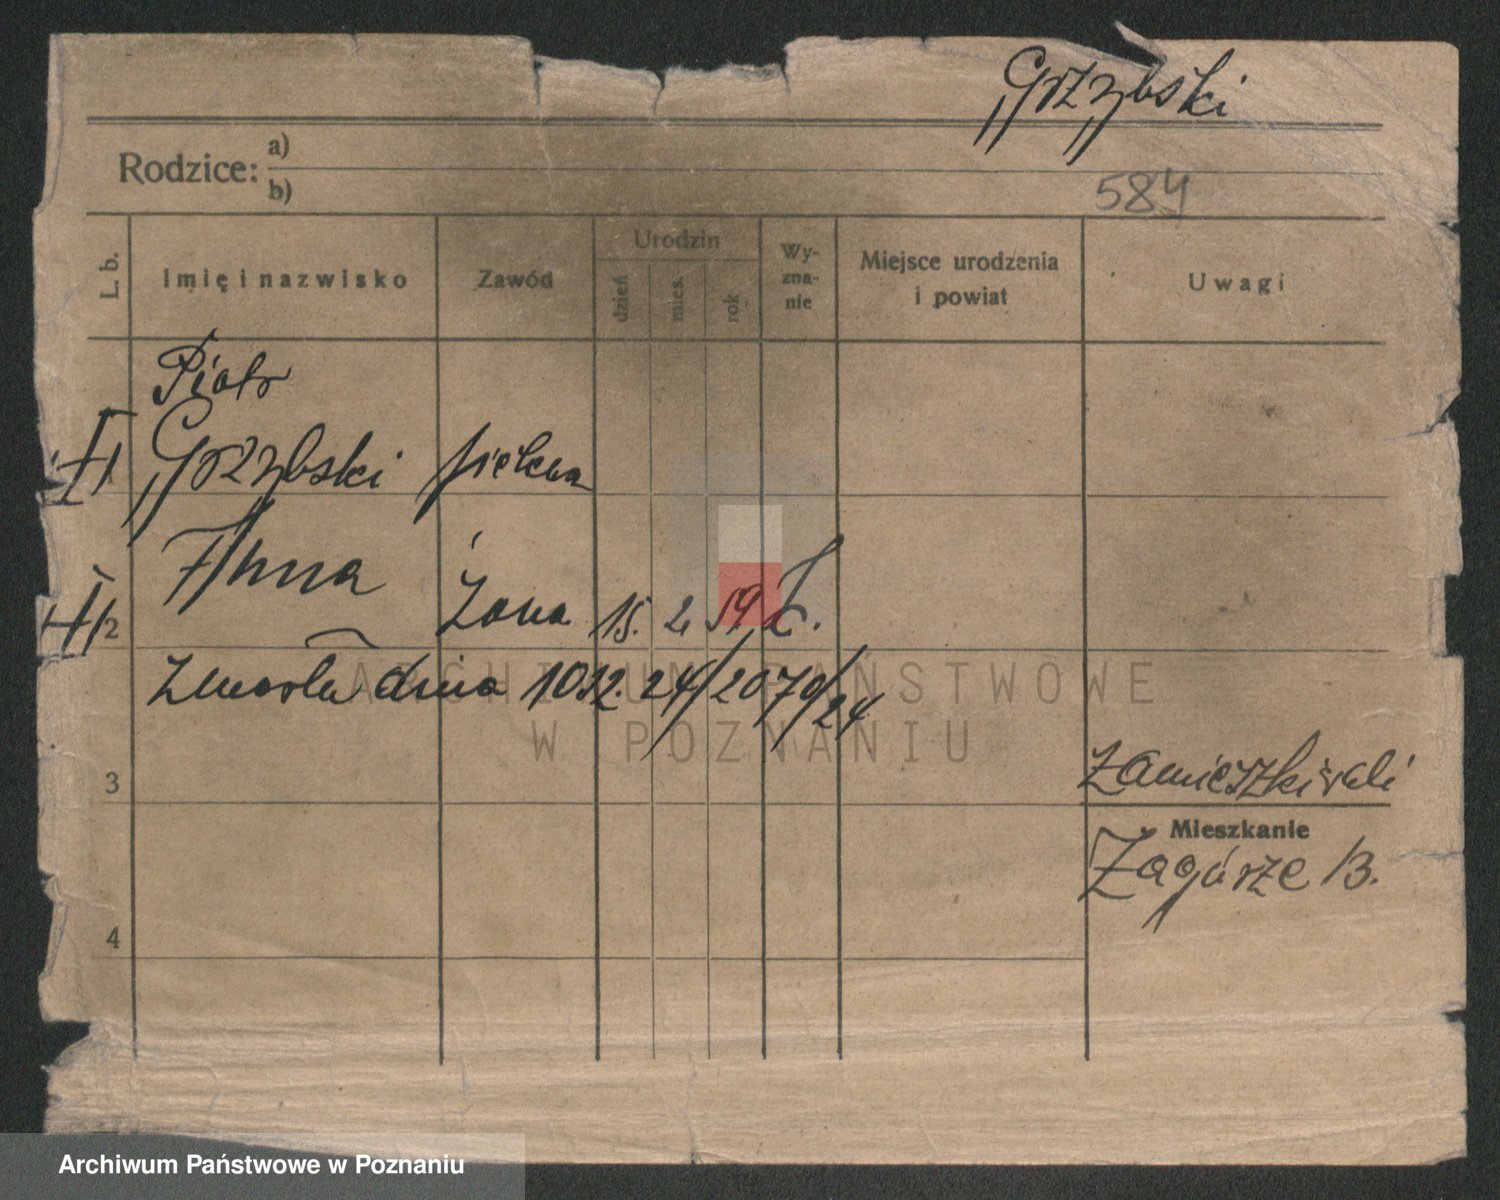 Grzybski
Rodzice: a)
b)
584
L. b.
Imię i nazwisko
Zawód
Urodzin
dzień
mies.
rok
Wy-
zna-
nie
Miejsce urodzenia
i powiat
Uwagi
Piotr
1 Grzybski
Anna
2 żona 15. 2. 59 k.
zmarła dnia 10.12.24/2070/24
3
zamieszkiwali
Mieszkanie
Zagórze 13.
4
ARCHIWUM PAŃSTWOWE
W POZNANIU
Archiwum Państwowe w Poznaniu